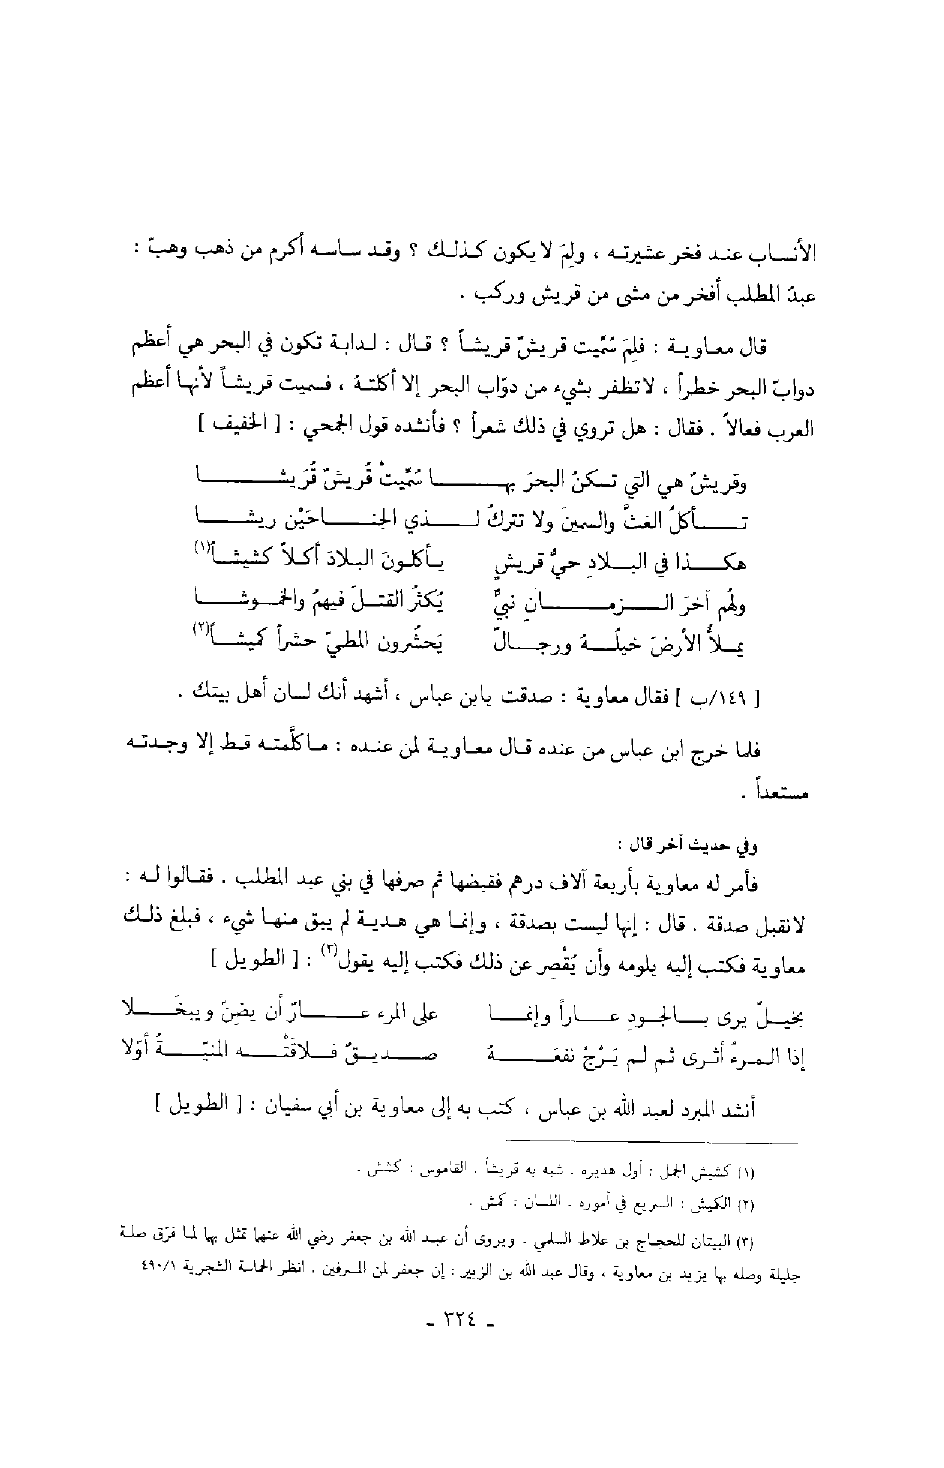 الأنساب عند فخر عشيرته ، ولِمَ لا يكون كذلك ؟ وقد ساسه أكرم من ذهب وهبّ :
عبدُ المطلب أفخر من مشى من قريش وركب .
قال معاوية : فلِمَ سُمِّيت قريشٌ قريشاً ؟ قال : لدابة تكون في البحر هي أعظم
دوابّ البحر خطراً ، لا تظفر بشيء من دوّاب البحر إلا أكلته ، فسميت قريشاً لأنها أعظم
العرب فعالاً . فقال : هل تروي في ذلك شعراً ؟ فأنشده قول الجمحي : [ الخفيف ]
وقريشٌ هي التي تسكنُ البحرَ بها سُمِّيتْ قُريشٌ قُرَيشا
تأكلُ الغثَّ والسمينَ ولا تتركُ لذي الجناحَيْن ريشا
هكذا في البلادِ حيُّ قريشٍ يأكلونَ البلادَ أكلاً كشيشاً(١)
ولهم آخرَ الزمانِ نبيٌّ يُكثرُ القتلَ فيهمُ والخموشا
يملأُ الأرضَ خيلُه ورجالٌ يَحشُرون المطيّ حشراً كميشاً(٢)
[ ١٤٩/ب ] فقال معاوية : صدقت يابن عباس ، أشهد أنك لسان أهل بيتك .
فلما خرج ابن عباس من عنده قال معاوية لمن عنده : ما كلَّمته قط إلا وجدته
مستعداً .
وفي حديث آخر قال :
فأمر له معاوية بأربعة آلاف درهم فقبضها ثم صرفها في بني عبد المطلب . فقالوا له :
لا نقبل صدقة . قال : إنها ليست بصدقة ، وإنما هي هدية لم يبق منها شيء ، فبلغ ذلك
معاوية فكتب إليه يلومه وأن يُقْصِر عن ذلك فكتب إليه يقول(٣) : [ الطويل ]
بخيلٌ يرى بالجودِ عاراً وإنما على المرء عارٌ أن يضنّ ويبخَلا
إذا المرءُ أثرى ثم لم يَرْجُ نفعَه صديقٌ فلاقتْه المنيّةُ أوّلا
أنشد المبرد لعبد الله بن عباس ، كتب به إلى معاوية بن أبي سفيان : [ الطويل ]
(١) كشيش الجمل : أول هديره . شبه به قريشاً . القاموس : كشش .
(٢) الكميش : السريع في أموره . اللسان : كمش .
(٣) البيتان للحجاج بن علاط السلمي . ويروى أن عبد الله بن جعفر رضي الله عنهما تمثل بها لما فرّق صلة
جليلة وصله بها يزيد بن معاوية ، وقال عبد الله بن الزبير : إن جعفر لمن المسرفين . انظر الحماسة الشجرية ٤٩٠/١
- ٣٢٤ -